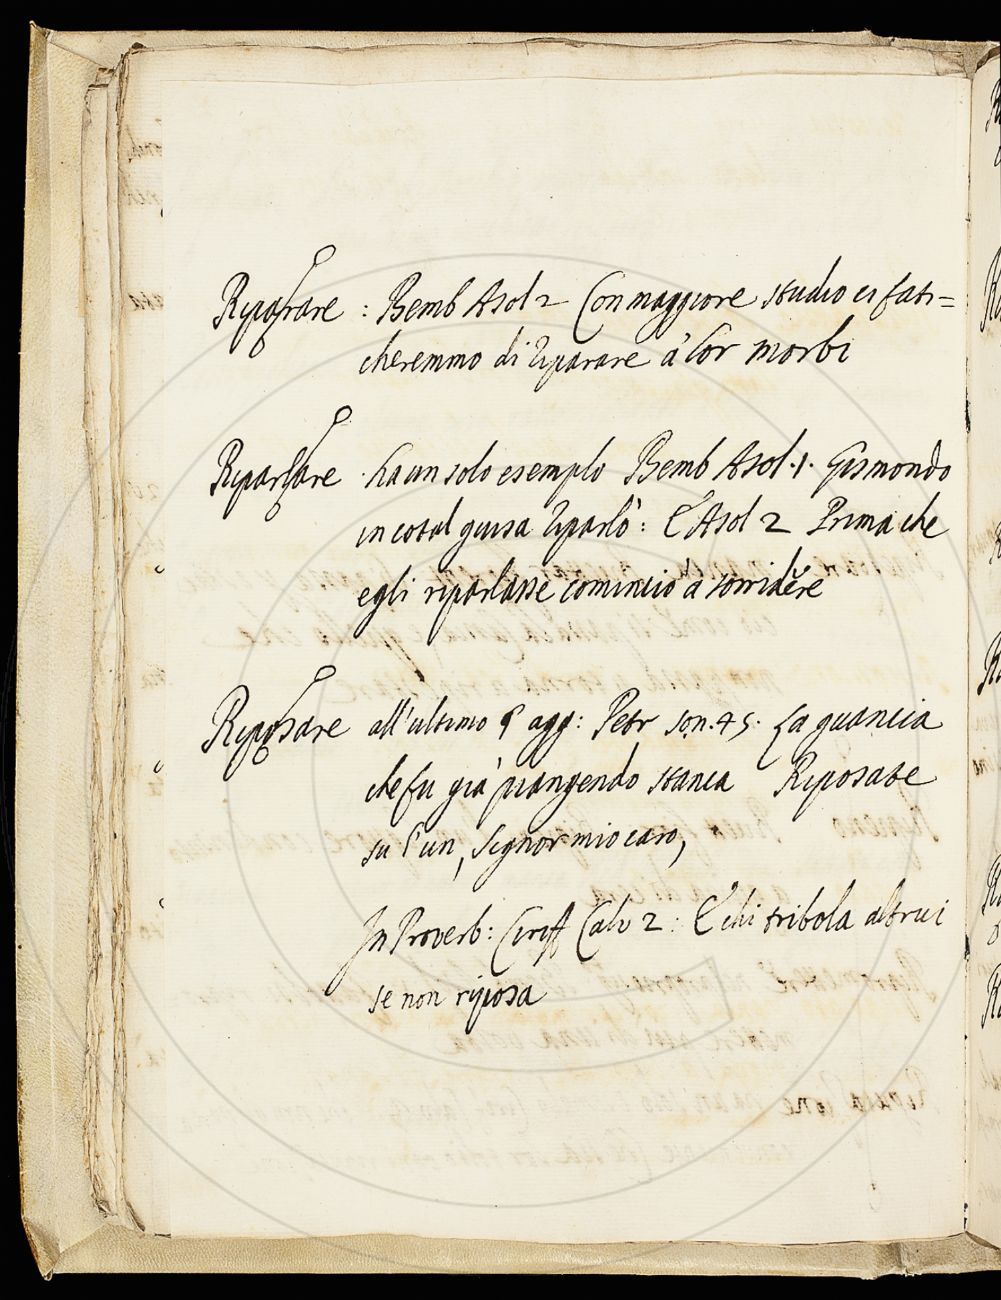 Riparare : Bemb Asol 2 Con maggiore studio ci fati=
cheremmo di riparare à lor morbi
Riparlare . ha un solo esemplo Bemb Asol. 1. Gismondo
in cotal guisa riparlò : E Asol 2 Prima che
egli riparlasse cominciò à sorridere
Riposare all'ultimo § agg: Petr son. 45. La guancia
che fu già piangendo stanca Riposate
su l'un, Signor mio caro,
In Proverb: Ciriff Calv 2 : E chi tribola altrui
se non riposa